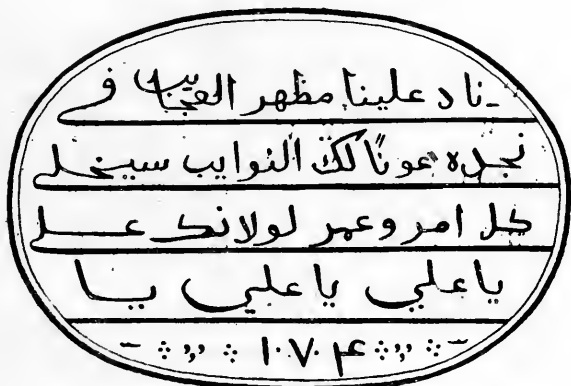 ناد علينا مظهر العجايب في
نجده عونا لك النوايب سينجلي
كل امر وعمر لولانك علي
ياعلي ياعلي يا
١٠٧۴